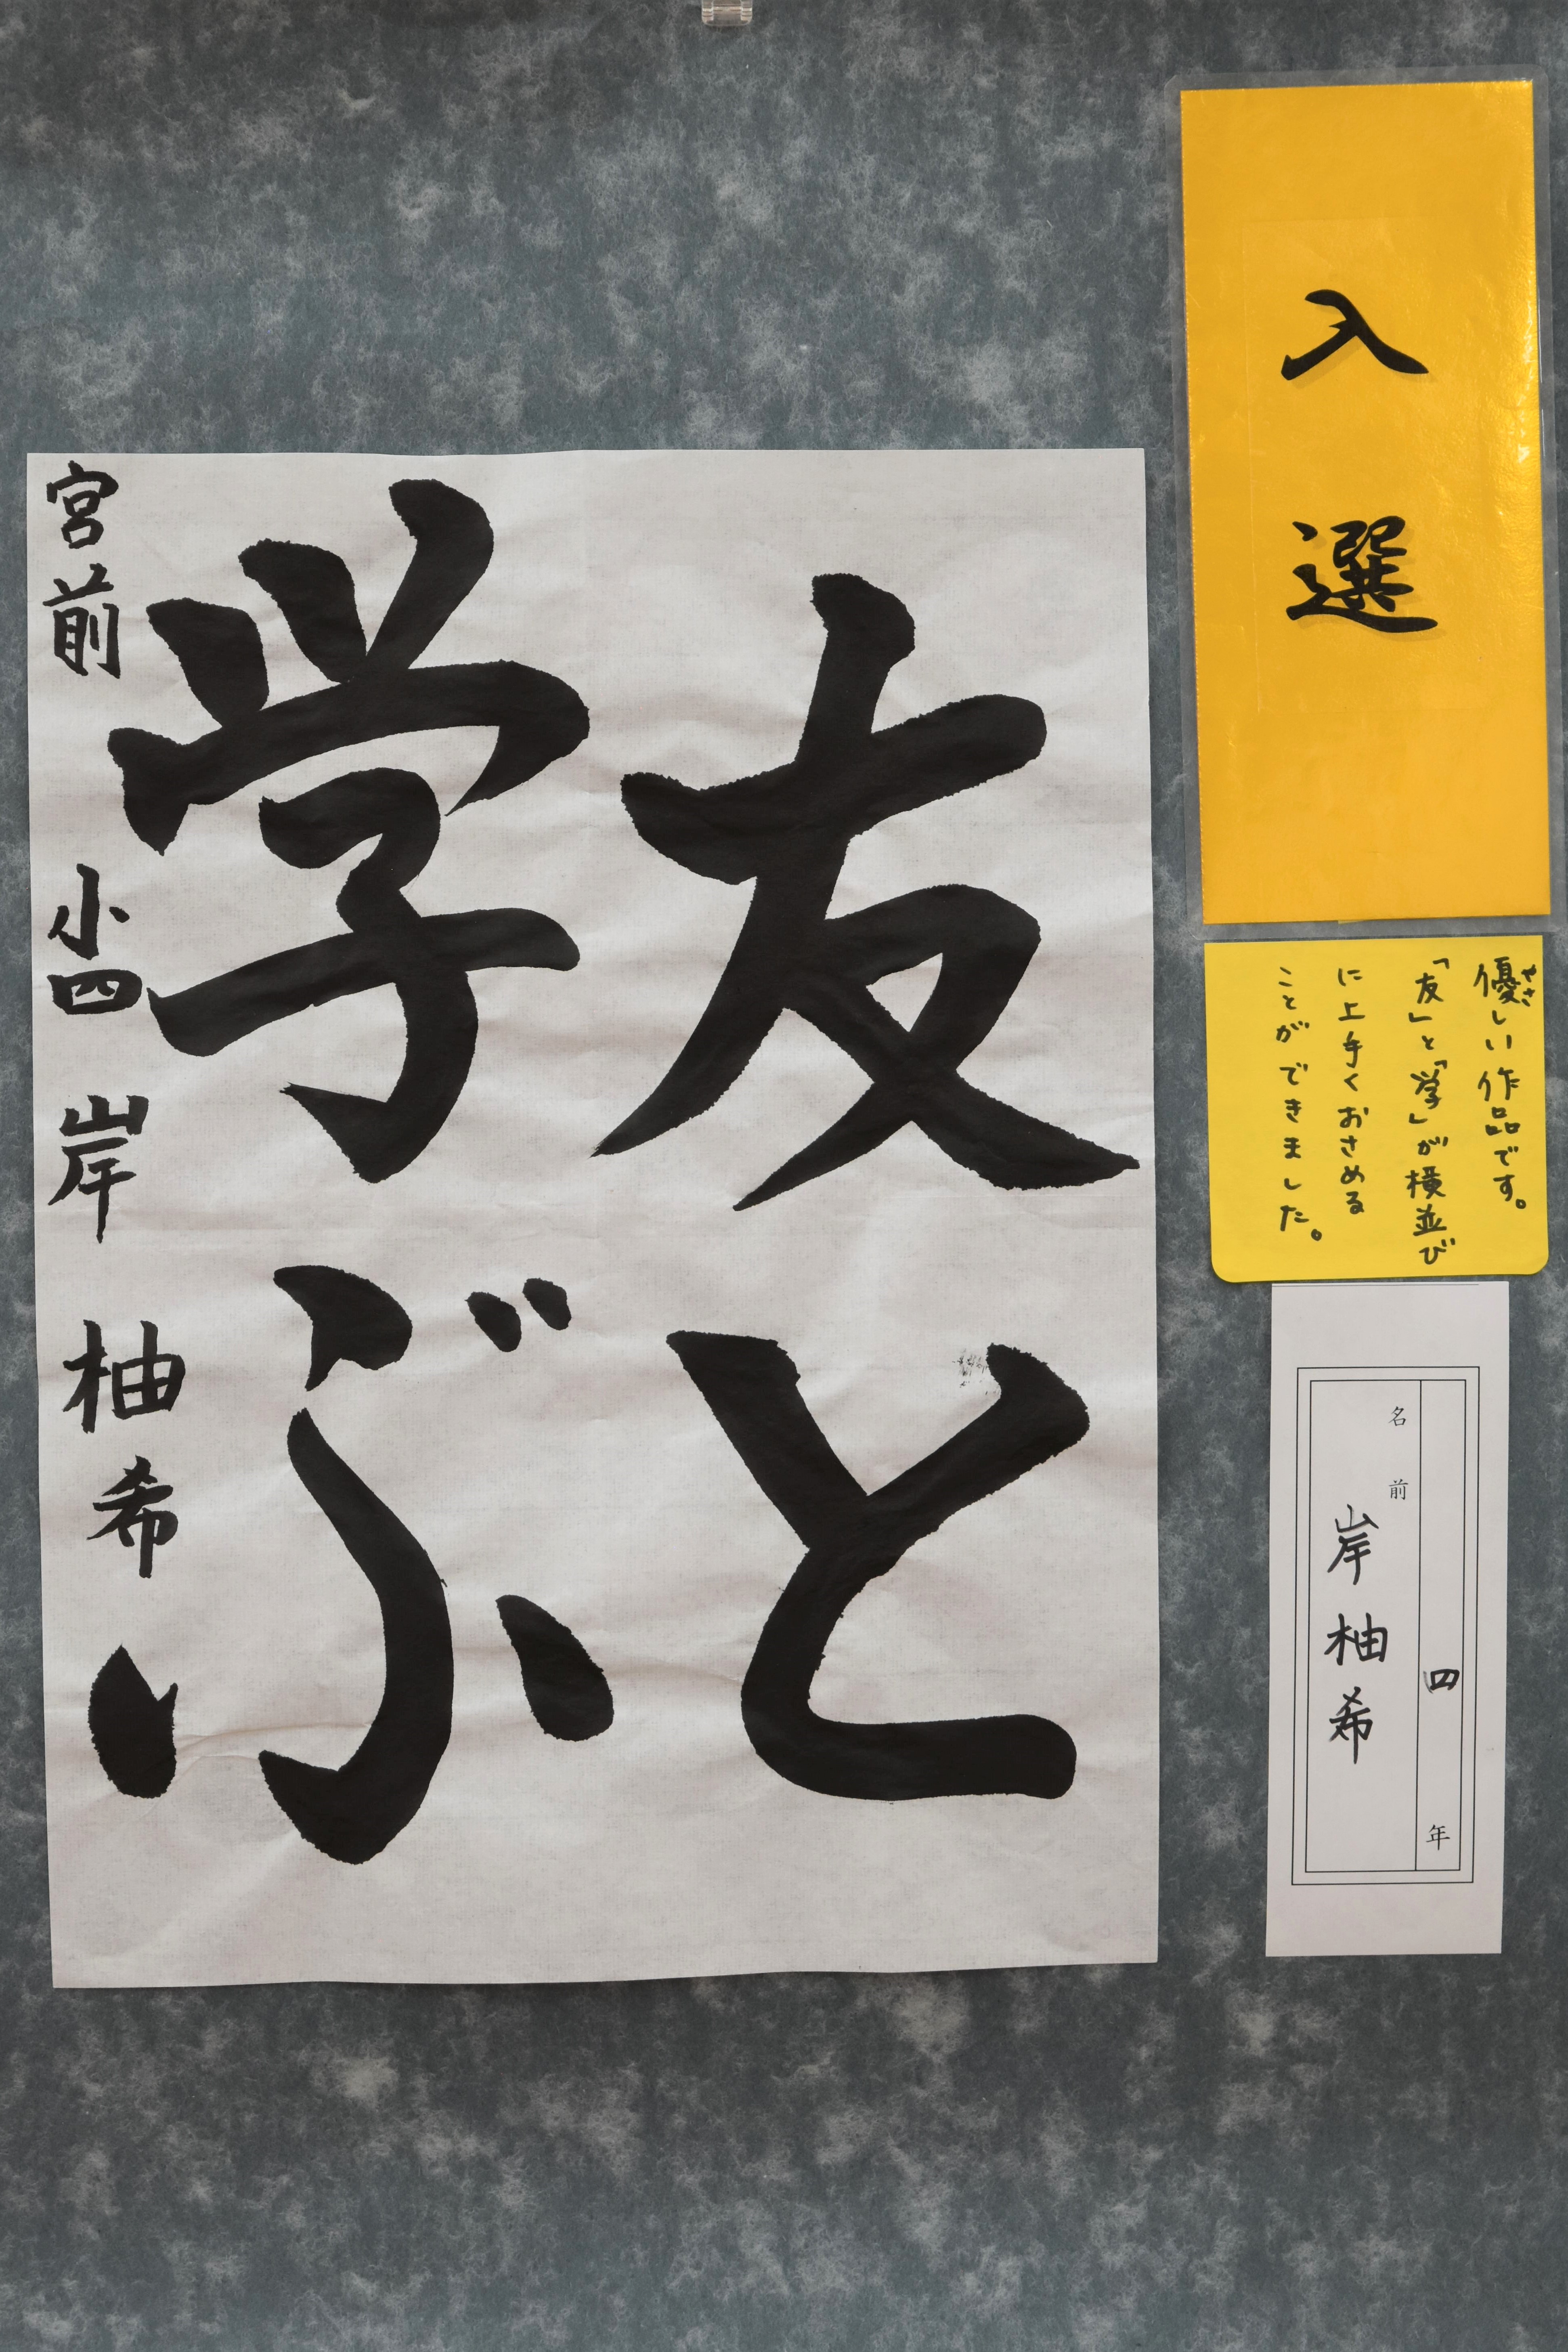 入選
優しい作品です。
やさ
「友」と「学」が横並び
に上手くおさめる
ことができました。
四年
名前 岸柚希
友と
学ぶ
宮前 小四 岸 柚希